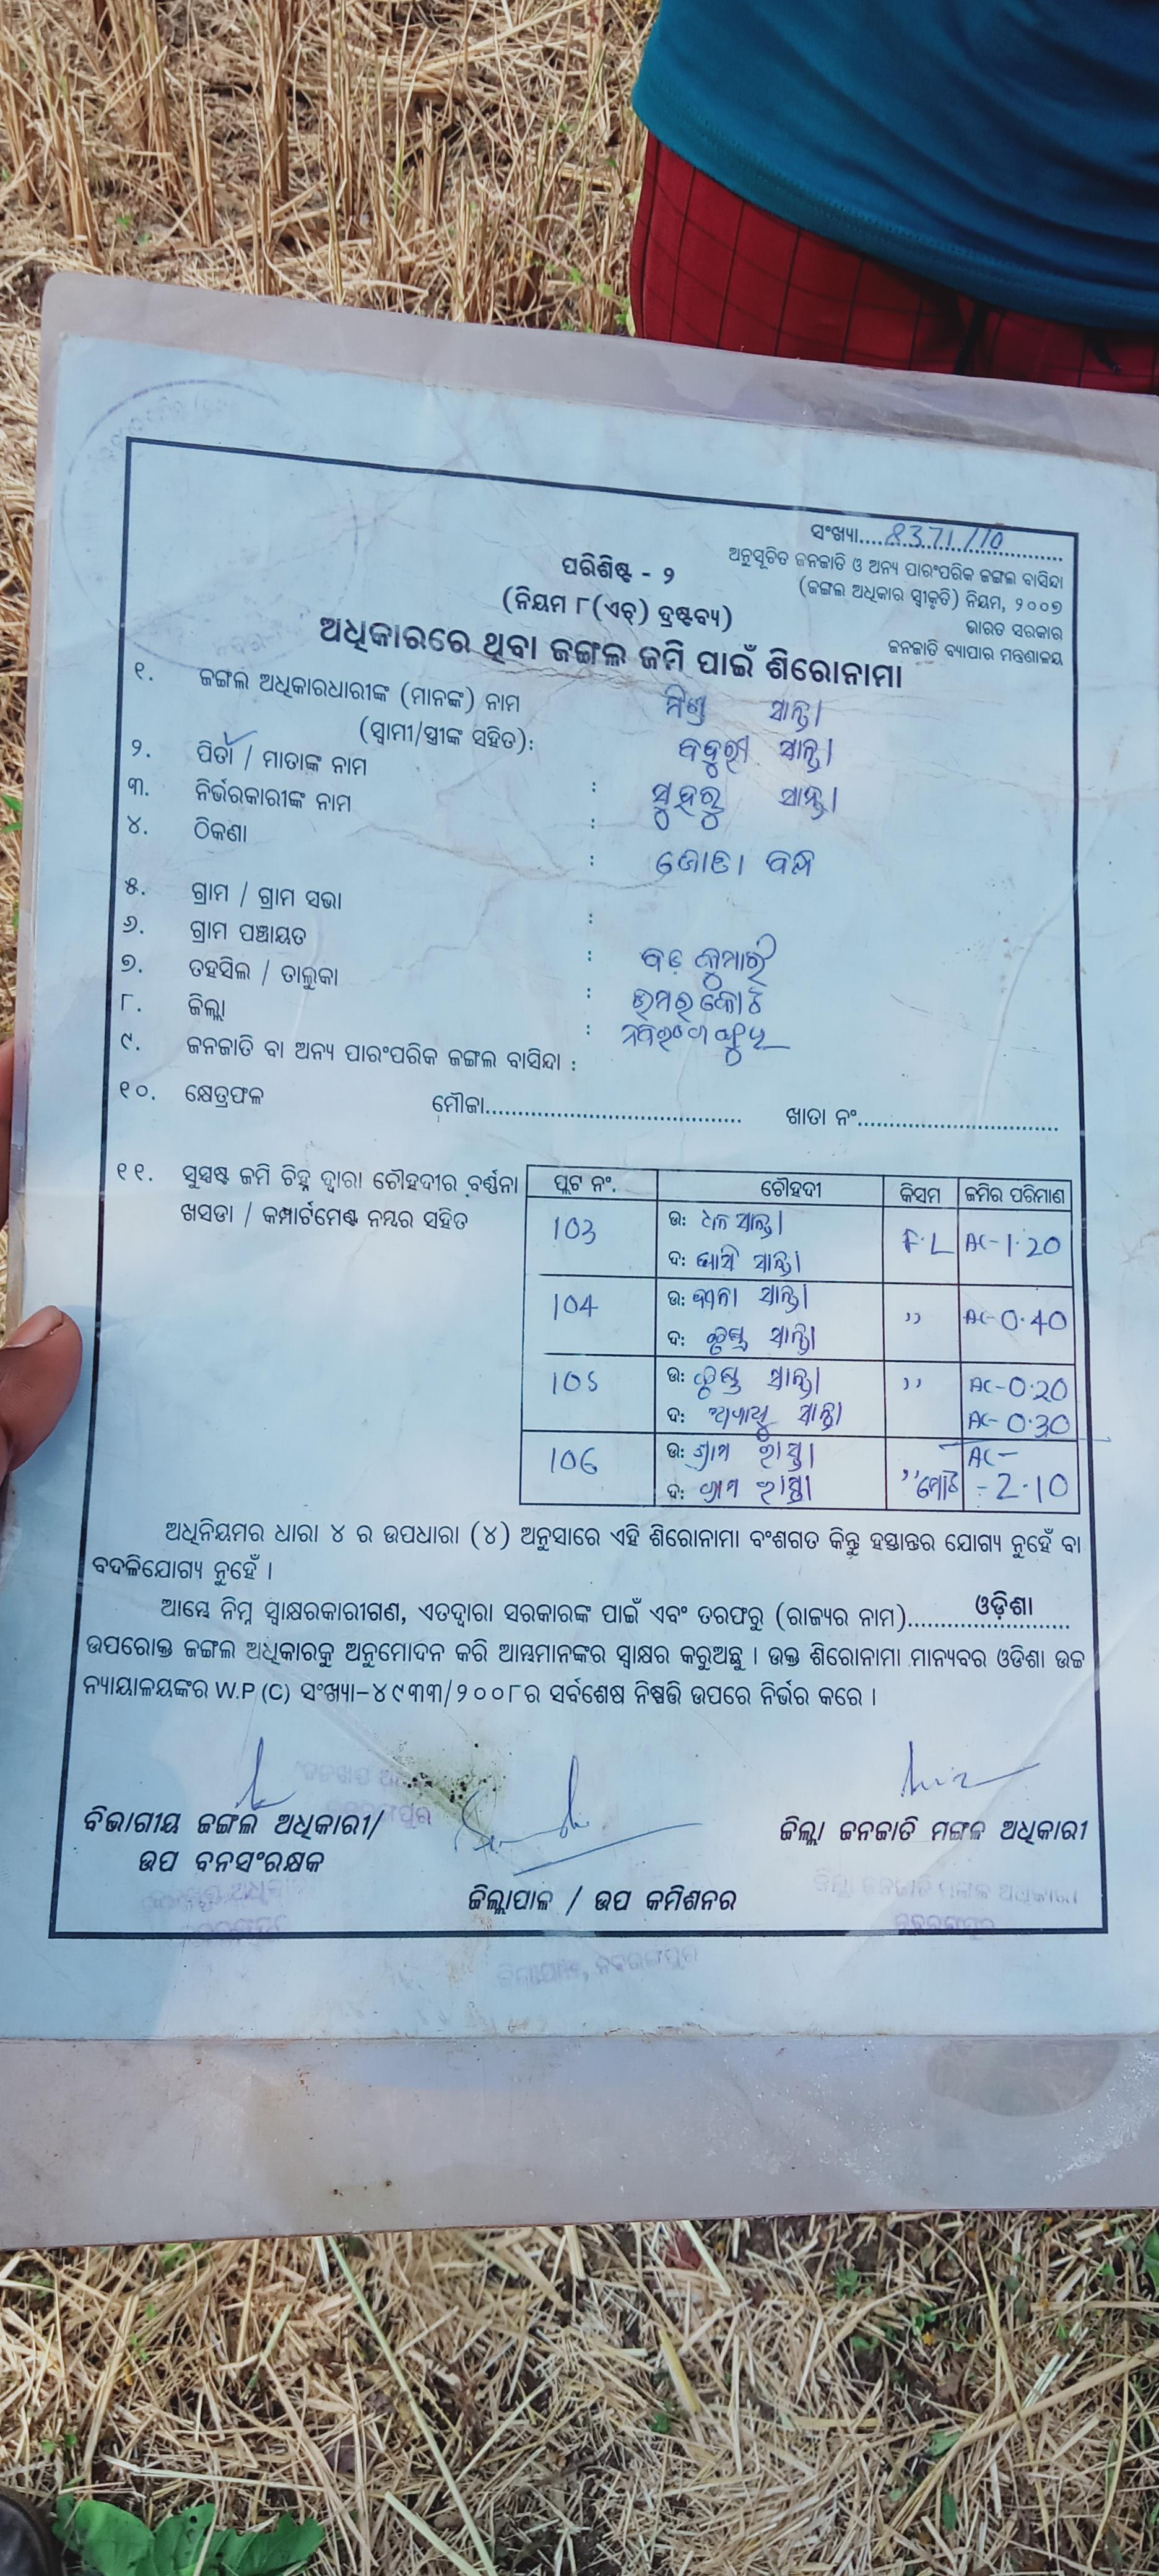 ସଂଖ୍ୟା....8371/10
ଅନୁସୂଚିତ ଜନଜାତି ଓ ଅନ୍ୟ ପାରଂପରିକ ଜଙ୍ଗଲ ବାସିନ୍ଦା
(ଜଙ୍ଗଲ ଅଧିକାର ସ୍ୱୀକୃତି) ନିୟମ, ୨୦୦୭
ଭାରତ ସରକାର
ଜନଜାତି ବ୍ୟାପାର ମନ୍ତ୍ରଣାଳୟ
ପରିଶିଷ୍ଟ - ୨
(ନିୟମ ୮(ଏଚ୍) ଦ୍ରଷ୍ଟବ୍ୟ)
ଅଧିକାରରେ ଥିବା ଜଙ୍ଗଲ ଜମି ପାଇଁ ଶିରୋନାମା
୧. ଜଙ୍ଗଲ ଅଧିକାରଧାରୀଙ୍କ (ମାନଙ୍କ) ନାମ ସାନ୍ତା
(ସ୍ୱାମୀ/ସ୍ତ୍ରୀଙ୍କ ସହିତ):
୨. ପିତା / ମାତାଙ୍କ ନାମ ସାନ୍ତା
୩. ନିର୍ଭରକାରୀଙ୍କ ନାମ : ସାନ୍ତା
୪. ଠିକଣା :
୫. ଗ୍ରାମ / ଗ୍ରାମ ସଭା :
୬. ଗ୍ରାମ ପଞ୍ଚାୟତ : ବଡ଼ କୁମାରୀ
୭. ତହସିଲ / ତାଲୁକା : ଉମରକୋଟ
୮. ଜିଲ୍ଲା : ନବରଂଗପୁର
୯. ଜନଜାତି ବା ଅନ୍ୟ ପାରଂପରିକ ଜଙ୍ଗଲ ବାସିନ୍ଦା :
୧୦. କ୍ଷେତ୍ରଫଳ ମୌଜା.......... ଖାତା ନଂ..........
୧୧. ସୁସ୍ପଷ୍ଟ ଜମି ଚିହ୍ନ ଦ୍ୱାରା ଚୌହଦୀର ବର୍ଣ୍ଣନା
ଖସଡା / କମ୍ପାର୍ଟମେଣ୍ଟ ନମ୍ବର ସହିତ
ପ୍ଲଟ ନଂ. ଚୌହଦୀ କିସମ ଜମିର ପରିମାଣ
103 ଉ: ସାନ୍ତା F.L AC-1.20
ଦ: ସାନ୍ତା
104 ଉ: ସାନ୍ତା ,, AC-0.40
ଦ: ସାନ୍ତା
105 ଉ: ସାନ୍ତା ,, AC-0.20
ଦ: ସାନ୍ତା AC-0.30
106 ଉ: ଗ୍ରାମ ରାସ୍ତା ,, ମୋଟ AC-
ଦ: ଗ୍ରାମ ରାସ୍ତା -2.10
ଅଧିନିୟମର ଧାରା ୪ ର ଉପଧାରା (୪) ଅନୁସାରେ ଏହି ଶିରୋନାମା ବଂଶଗତ କିନ୍ତୁ ହସ୍ତାନ୍ତର ଯୋଗ୍ୟ ନୁହେଁ ବା
ବଦଳିଯୋଗ୍ୟ ନୁହେଁ ।
ଆମ୍ଭେ ନିମ୍ନ ସ୍ୱାକ୍ଷରକାରୀଗଣ, ଏତଦ୍ୱାରା ସରକାରଙ୍କ ପାଇଁ ଏବଂ ତରଫରୁ (ରାଜ୍ୟର ନାମ)..........ଓଡ଼ିଶା..........
ଉପରୋକ୍ତ ଜଙ୍ଗଲ ଅଧିକାରକୁ ଅନୁମୋଦନ କରି ଆମ୍ଭମାନଙ୍କର ସ୍ୱାକ୍ଷର କରୁଅଛୁ । ଉକ୍ତ ଶିରୋନାମା ମାନ୍ୟବର ଓଡିଶା ଉଚ୍ଚ
ନ୍ୟାୟାଳୟଙ୍କର W.P.(C) ସଂଖ୍ୟା-୪୯୩୩/୨୦୦୮ର ସର୍ବଶେଷ ନିଷ୍ପତ୍ତି ଉପରେ ନିର୍ଭର କରେ ।
ବିଭାଗୀୟ ଜଙ୍ଗଲ ଅଧିକାରୀ/
ଉପ ବନସଂରକ୍ଷକ
ଜିଲ୍ଲାପାଳ / ଉପ କମିଶନର
ଜିଲ୍ଲା ଜନଜାତି ମଙ୍ଗଳ ଅଧିକାରୀ
ଜିଲ୍ଲା ଜନଜାତି ମଙ୍ଗଳ ଅଧିକାରୀ
ନବରଙ୍ଗପୁର
ଜିଲ୍ଲାପାଳ, ନବରଙ୍ଗପୁର